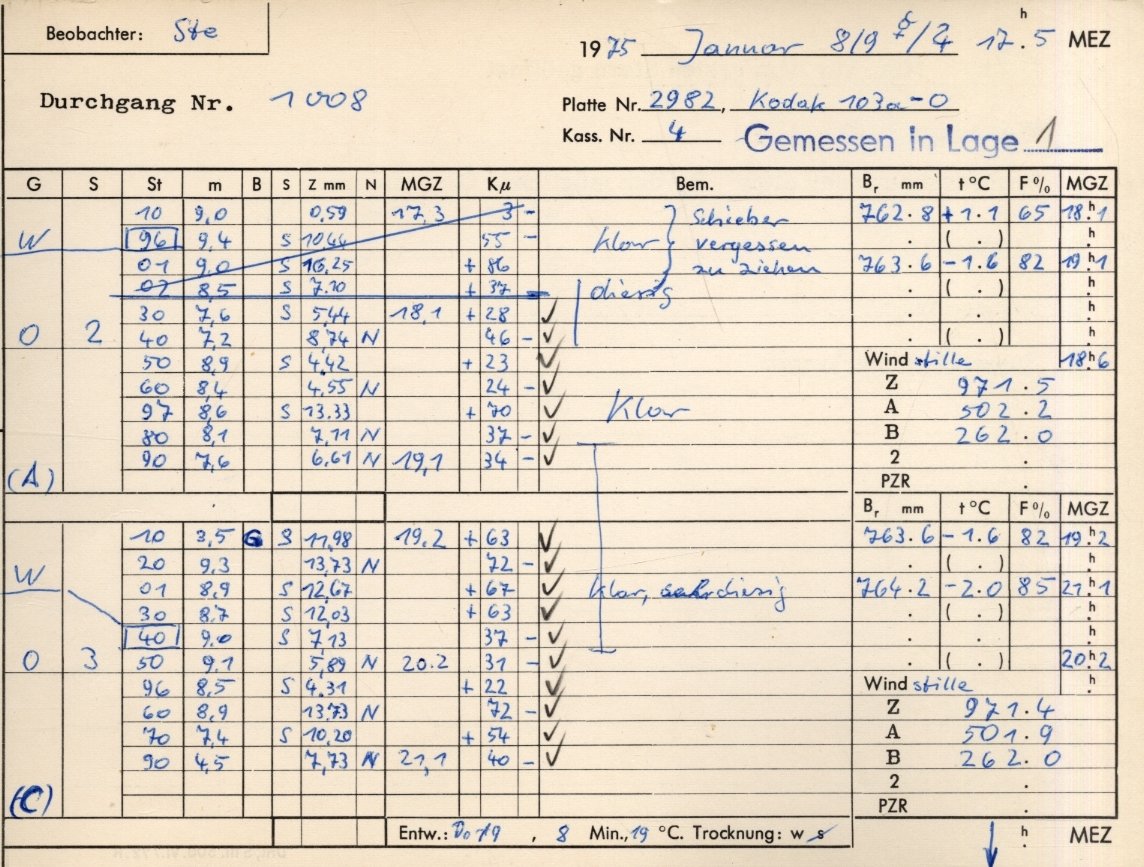 Beobachter: Ste
1975 Januar 8/9 ☿/♃ 17.h5 MEZ
Durchgang Nr. 1008
Platte Nr. 2982, Kodak 103a-0
Kass. Nr. 4 Gemessen in Lage 1
G S St m B S Z mm N MGZ Kμ Bem. Br mm t °C F % MGZ
10 9,0 0,59 17,3 3 - Schieber 762.8 +1.1 65 18.h1
W 96 9,4 S 10,44 55 - klar vergessen . ( . ) .h
01 9,0 S 16,25 + 86 zu ziehen 763.6 -1.6 82 19.h1
02 8,5 S 7,10 + 37 diesig . ( . ) .h
30 7,6 S 5,44 18,1 + 28 ✓ . . .h
O 2 40 7,2 8,74 N 46 - ✓ . ( . ) .h
50 8,9 S 4,42 + 23 ✓ Wind stille 18.h6
60 8,4 4,55 N 24 - ✓ Z 971.5
97 8,6 S 13,33 + 70 ✓ Klar A 502.2
80 8,1 7,11 N 37 - ✓ B 262.0
90 7,6 6,61 N 19,1 34 - ✓ 2 .
(A) PZR .
Br mm t °C F % MGZ
10 3,5 G S 11,98 19.2 + 63 ✓ 763.6 -1.6 82 19.h2
20 9,3 13,73 N 72 - ✓ . ( . ) .h
W 01 8,9 S 12,67 + 67 ✓ klar, sehr diesig 764.2 -2.0 85 21.h1
30 8,7 S 12,03 + 63 ✓ . ( . ) .h
40 9.0 S 7,13 37 - ✓ . . .h
O 3 50 9.1 5,89 N 20.2 31 - ✓ . ( . ) 20.h2
96 8,5 S 4.31 + 22 ✓ Wind stille .h
60 8,9 13,73 N 72 - ✓ Z 971.4
70 7,4 S 10,20 + 54 ✓ A 501.9
90 4,5 7,73 N 21,1 40 - ✓ B 262.0
2 .
(C) PZR .
Entw.: D19, 8 Min., 19 °C. Trocknung: w s .h MEZ